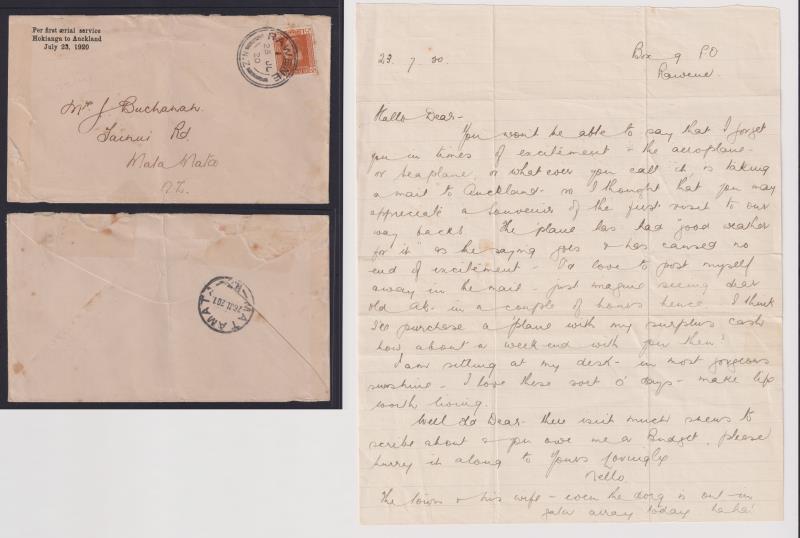 Per first aerial service
Hokianga to Auckland
July 23, 1920
RAWENE
25 JL
20
N.Z
Mr J. Buchanan.
Tainui Rd
Mata Mata
N.Z.
MATAMATA
26 JL 20
N.Z
23. 7. 20.
Box 9 PO
Rawene.
Hallo Dear-
You won't be able to say that I forget
you in times of excitement - the aeroplane -
or seaplane, or what ever you call it, is taking
a mail to Auckland - so I thought that you may
appreciate a souvenir of the first visit to our
way backs. The plane has had "good weather
for it" as the saying goes & has caused no
end of excitement - I'd love to post myself
away in the mail - just imagine seeing dear
old Ak. in a couple of hours hence. I think
I'll purchase a plane with my surplus cash
how about a week-end with you then?
I am sitting at my desk - in most gorgeous
sunshine - I love these sort o' days - make life
worth living.
Well Old Dear - there isn't much news to
scribe about & you owe me a Budget, please
hurry it along to Yours Lovingly
The town & his wife - even the dog is out - in
gala array today ha ha!